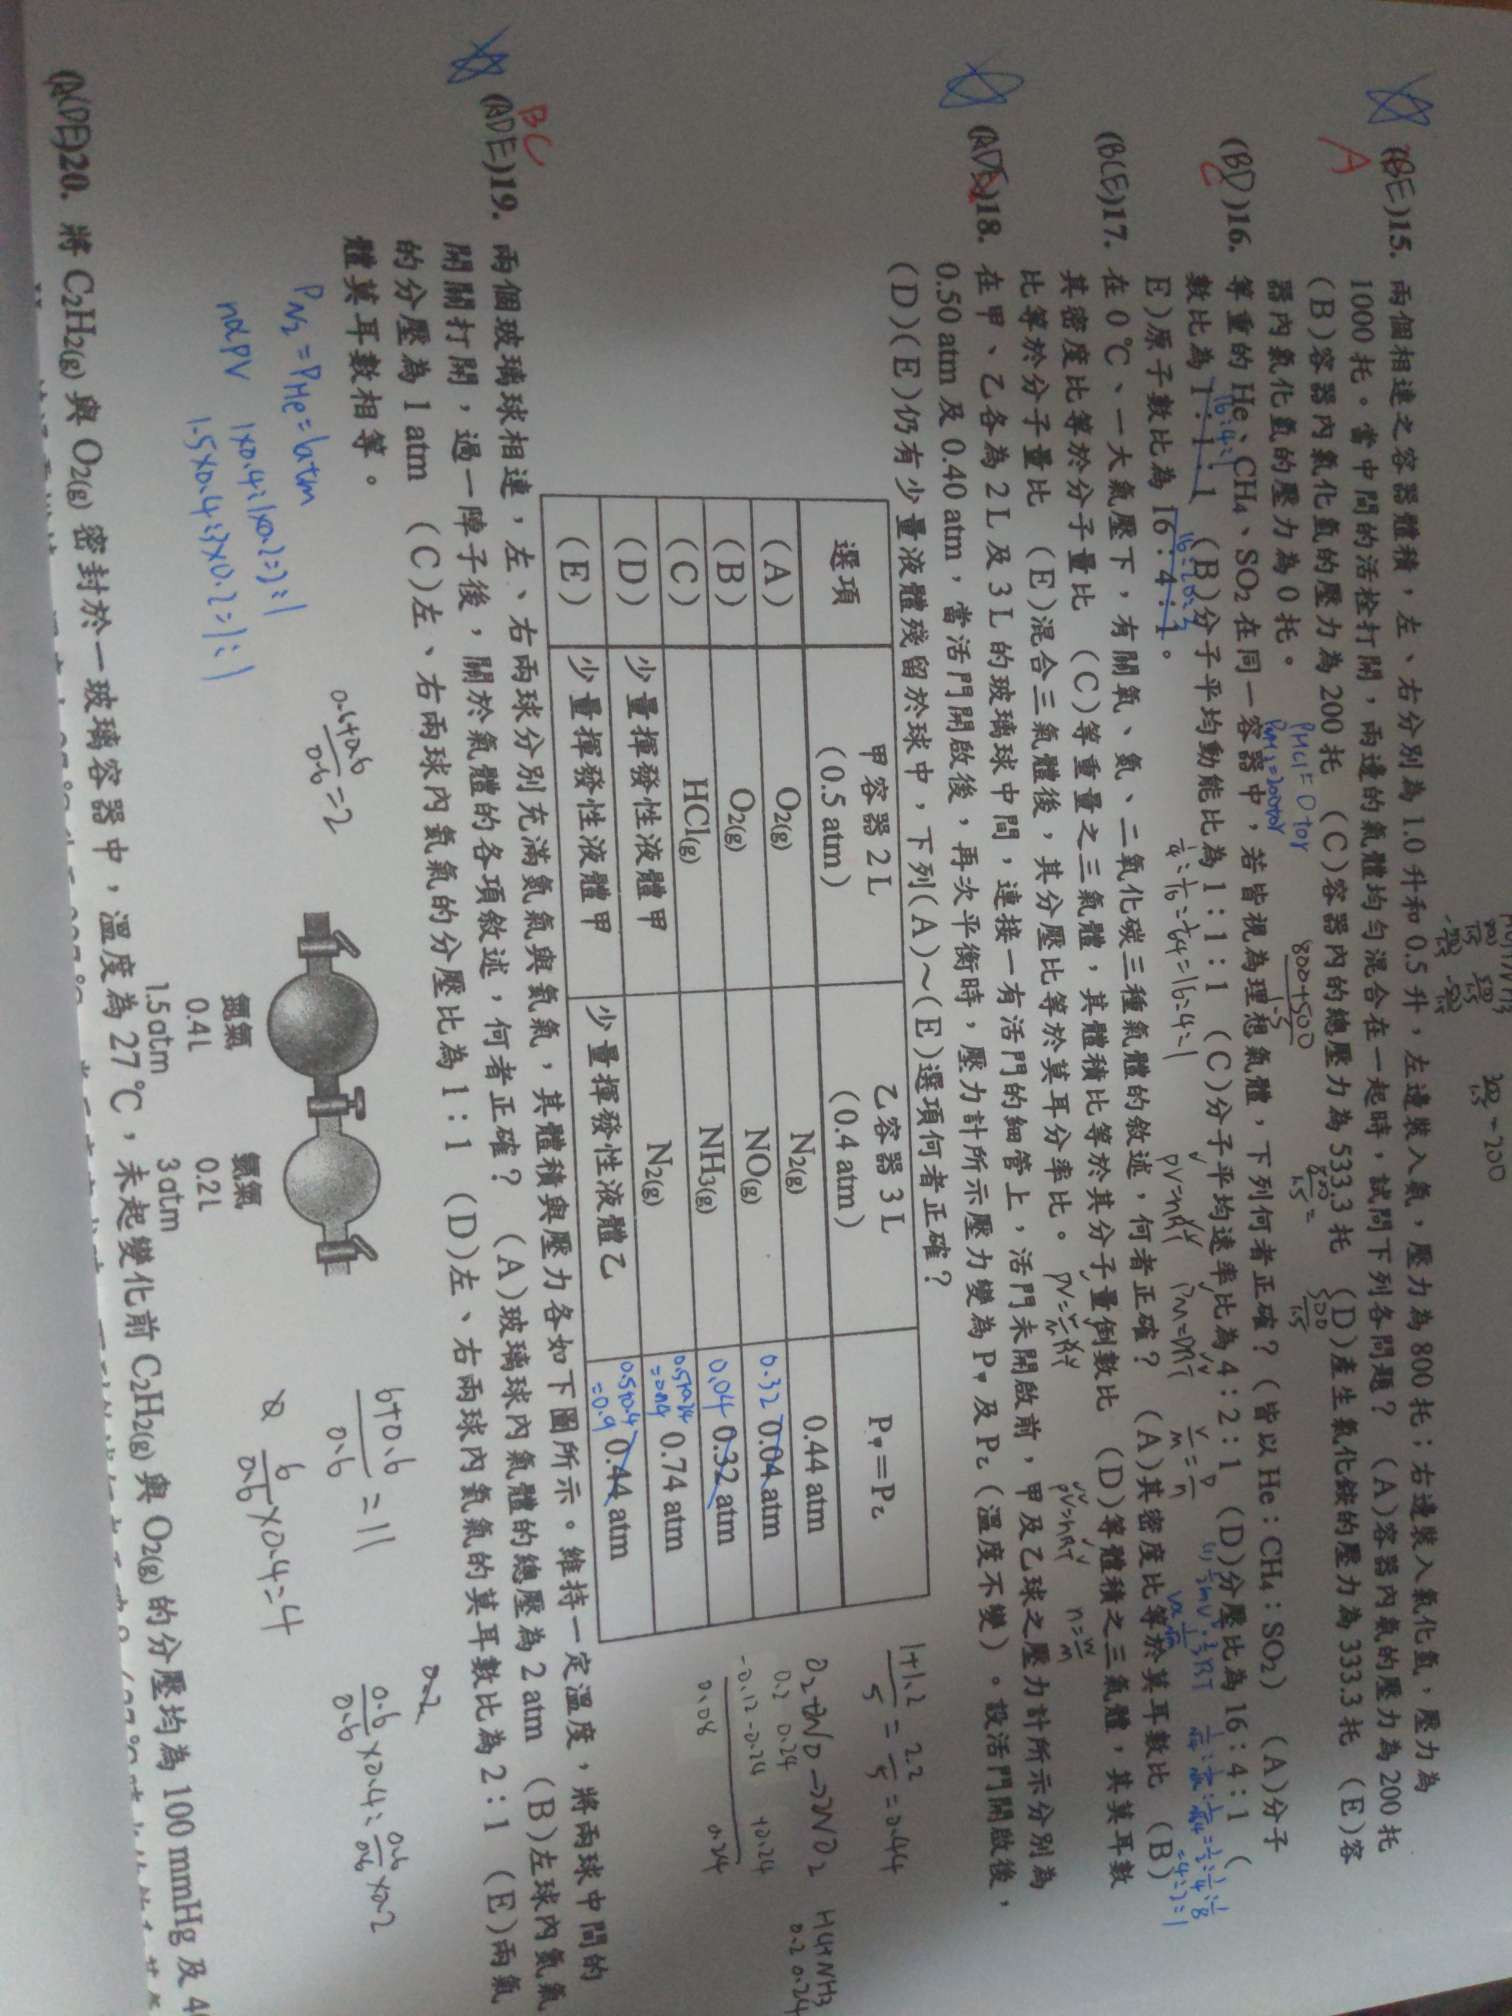 (BE)15. 兩個相連之容器體積，左、右分別為 1.0 升和 0.5 升，左邊裝入氨，壓力為 800 托；右邊裝入氯化氫，壓力為
A
1000 托。當中間的活栓打開，兩邊的氣體均勻混合在一起時，試問下列各問題？ (A)容器內氨的壓力為 200 托
(B)容器內氯化氫的壓力為 200 托 (C)容器內的總壓力為 533.3 托 (D)產生氯化銨的壓力為 333.3 托 (E)容
器內氯化氫的壓力為 0 托。
PHCl = 0 torr
(BD)16. 等重的 He、CH₄、SO₂ 在同一容器中，若皆視為理想氣體，下列何者正確？(皆以 He：CH₄：SO₂) (A)分子
C
數比為 1：1：1 (B)分子平均動能比為 1：1：1 (C)分子平均速率比為 4：2：1 (D)分壓比為 16：4：1 (
E)原子數比為 16：4：1。
(BCE)17. 在 0 ℃、一大氣壓下，有關氧、氮、二氧化碳三種氣體的敘述，何者正確？ (A)其密度比等於莫耳數比 (B)
其密度比等於分子量比 (C)等重量之三氣體，其體積比等於其分子量倒數比 (D)等體積之三氣體，其莫耳數
比等於分子量比 (E)混合三氣體後，其分壓比等於莫耳分率比。
18. 在甲、乙各為 2 L 及 3 L 的玻璃球中間，連接一有活門的細管上，活門未開啟前，甲及乙球之壓力計所示分別為
0.50 atm 及 0.40 atm，當活門開啟後，再次平衡時，壓力計所示壓力變為 P甲 及 P乙（溫度不變）。設活門開啟後，
(D)(E)仍有少量液體殘留於球中，下列(A)～(E)選項何者正確？
選項 甲容器 2 L (0.5 atm) 乙容器 3 L (0.4 atm) P甲＝P乙
(A) O₂(g) N₂(g) 0.44 atm
(B) O₂(g) NO(g) 0.32 0.04 atm
(C) HCl(g) NH₃(g) 0.04 0.32 atm
(D) 少量揮發性液體甲 N₂(g) 0.74 atm
(E) 少量揮發性液體甲 少量揮發性液體乙 0.5+0.4 =0.9 0.44 atm
1+1.2/5 = 2.2/5 = 0.44
O₂+2NO→2NO₂
0.2 0.24
-0.12 -0.24 +0.24
0.08 0.24
HCl+NH₃
0.2 0.24
BC
(ADE)19. 兩個玻璃球相連，左、右兩球分別充滿氮氣與氦氣，其體積與壓力各如下圖所示。維持一定溫度，將兩球中間的
開關打開，過一陣子後，關於氣體的各項敘述，何者正確？ (A)玻璃球內氣體的總壓為 2 atm (B)左球內氮氣
的分壓為 1 atm (C)左、右兩球內氦氣的分壓比為 1：1 (D)左、右兩球內氦氣的莫耳數比為 2：1 (E)兩氣
體莫耳數相等。
氮氣
0.4 L
1.5 atm
氦氣
0.2 L
3 atm
PN₂=PHe=1atm
n∝PV
1×0.4:1×0.2=2:1
1.5×0.4:3×0.2=1:1
0.6+0.6/0.6=2
6+0.6/0.6=11
6/0.6×0.4=4
0.6/0.6×0.4:0.6/0.6×0.2
(ACDE)20. 將 C₂H₂(g) 與 O₂(g) 密封於一玻璃容器中，溫度為 27 ℃，未起變化前 C₂H₂(g) 與 O₂(g) 的分壓均為 100 mmHg 及 4